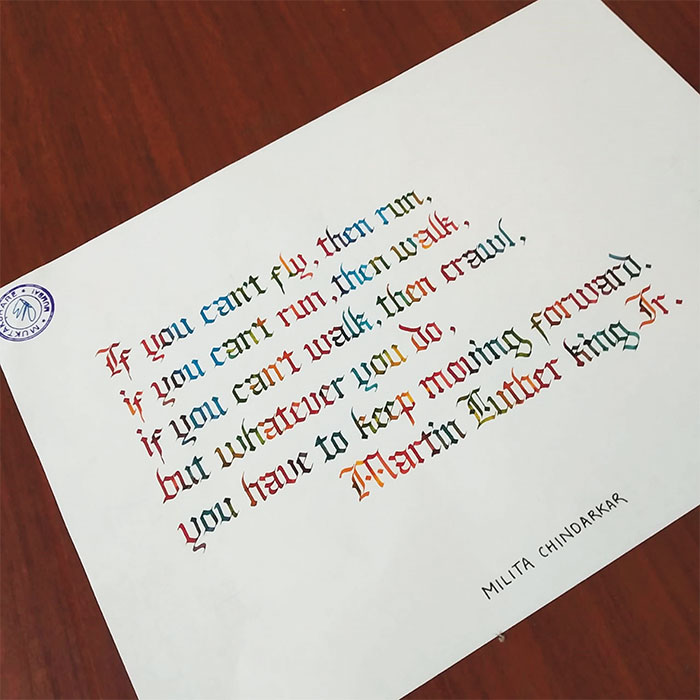 If you can't fly, then run,
if you can't run, then walk,
if you can't walk, then crawl,
but whatever you do,
you have to keep moving forward.
Martin Luther king Jr.
MILITA CHINDARKAR
MUMBAI